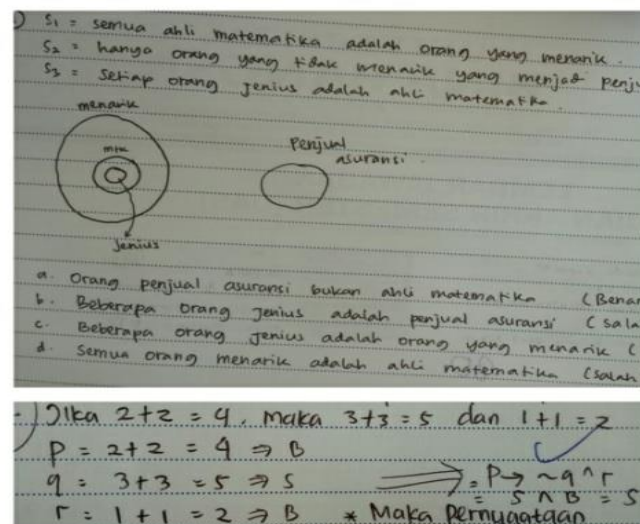 S₁ = semua ahli matematika adalah orang yang menarik.
S₂ = hanya orang yang tidak menarik yang menjadi
S₃ = Setiap orang jenius adalah ahli matematika.
menarik
mtk
Jenius
Penjual
asuransi
a. Orang penjual asuransi bukan ahli matematika (Benar
b. Beberapa orang jenius adalah penjual asuransi (sala
c. Beberapa orang jenius adalah orang yang menarik (
d. Semua orang menarik adalah ahli matematika (salah
Jika 2+2 = 4, maka 3+3 = 5 dan 1+1 = 2
P = 2+2 = 4 ⇒ B
q = 3+3 = 5 ⇒ S
= P → ~q ^ r
= S ∧ B = S
r = 1+1 = 2 ⇒ B
* Maka Pernyataan